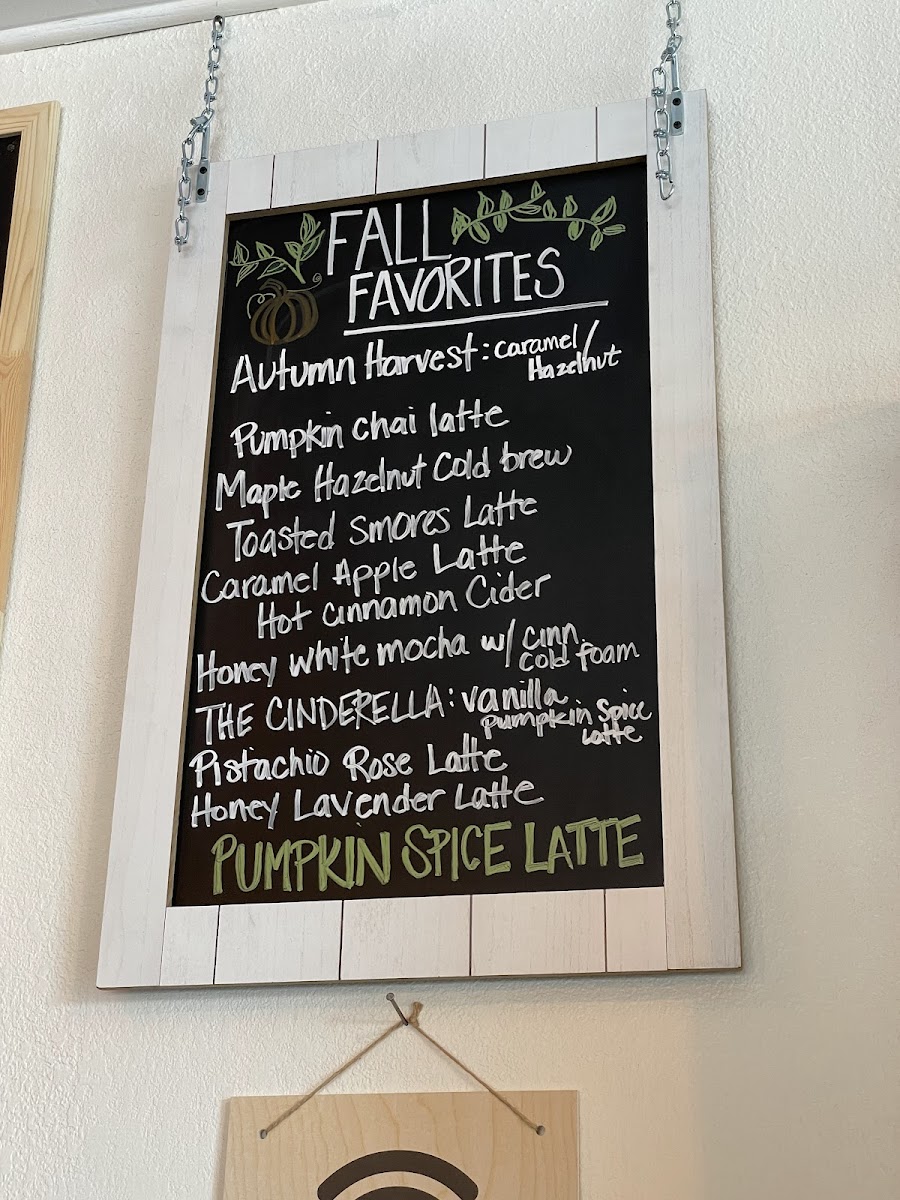 FALL
FAVORITES
Autumn Harvest: caramel/
Hazelnut
Pumpkin chai latte
Maple Hazelnut Cold brew
Toasted Smores Latte
Caramel Apple Latte
Hot cinnamon Cider
Honey white mocha w/ cinn.
cold foam
THE CINDERELLA: vanilla
pumpkin spice
latte
Pistachio Rose Latte
Honey Lavender Latte
PUMPKIN SPICE LATTE